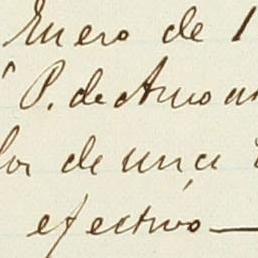 Enero de 1
P. de Amo un
lor de una
efectivo—